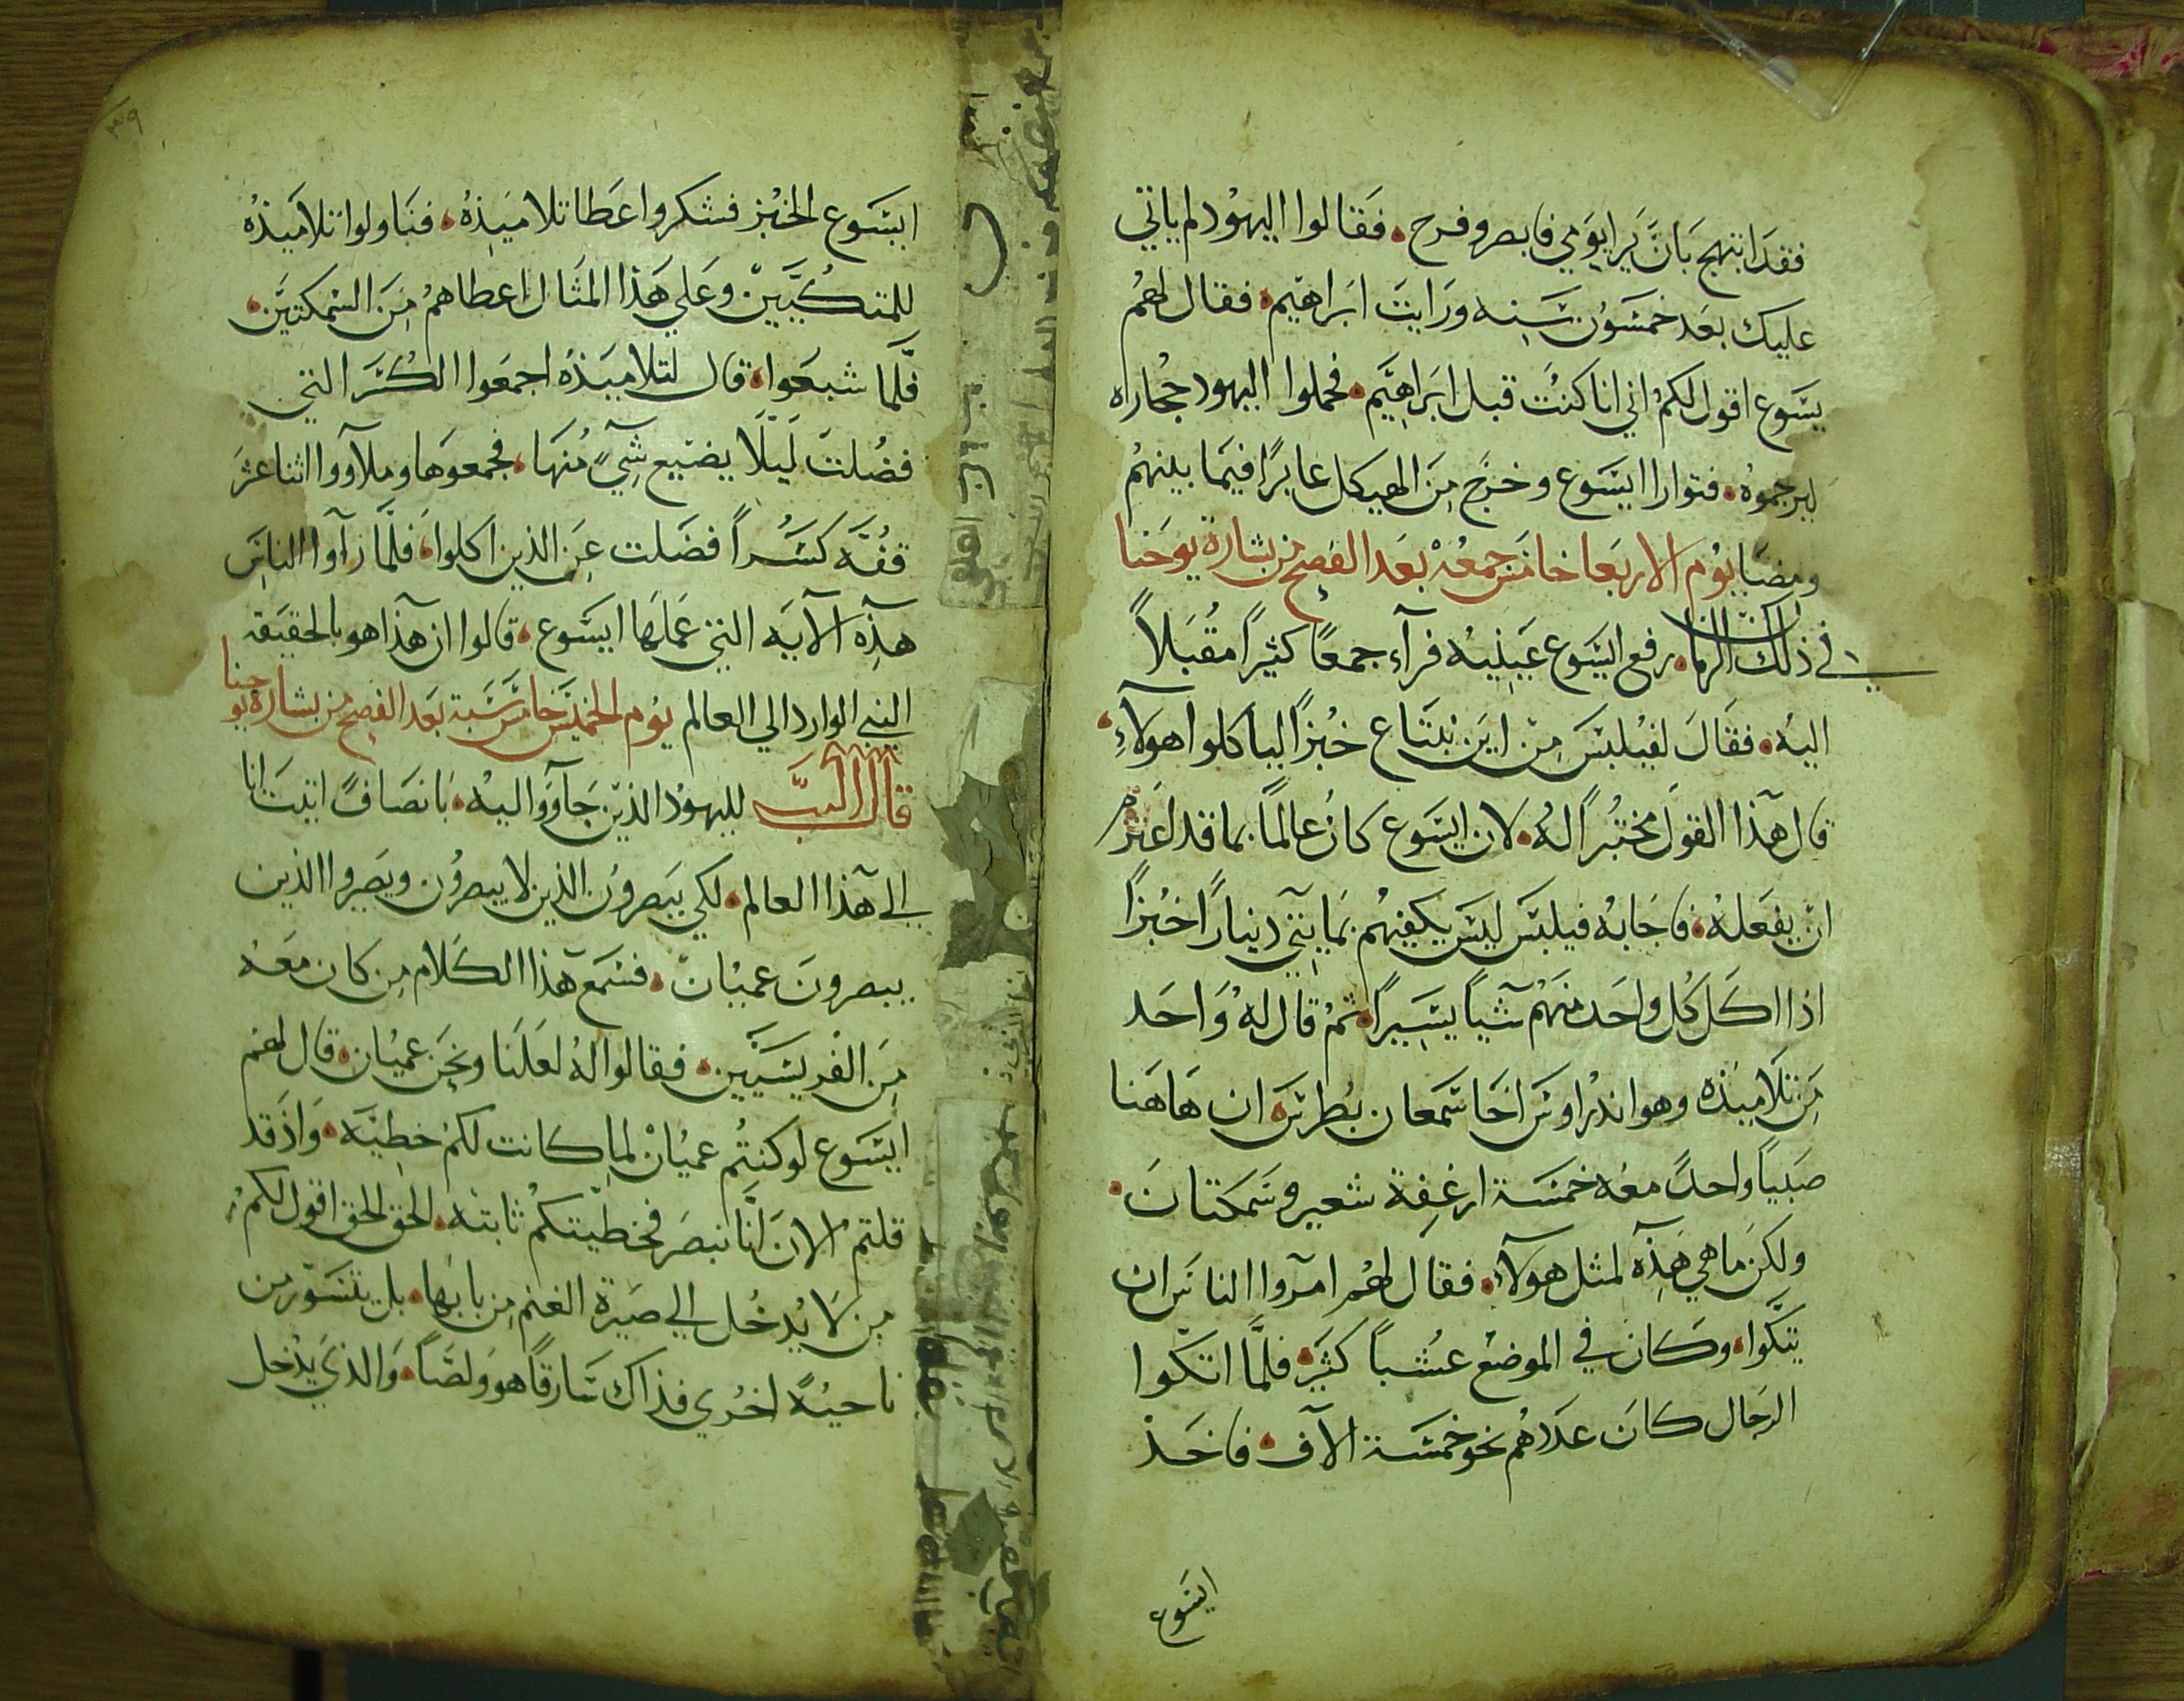 فقد ابتهج بان يرا يومي فابصر وفرح. فقالوا اليهود لم ياتي
عليك بعد خمسون سنه ورايت ابراهيم. فقال لهم
يسوع اقول لكم اني انا كنت قبل ابراهيم. فحملوا اليهود حجاراه
ليرجموه. فتوارا ايسوع وخرج من الهيكل عابرًا فيما بينهم
ومضا يوم الاربعا خامس جمعه بعد الفصح من بشارة يوحنا
في ذلك الزمان رفع ايسوع عينيه فرآء جمعًا كثيرًا مقبلاً
اليه. فقال لفيلبس من اين نبتاع خبزًا ليا كلوا هولاءِ.
قال هذا القول مختبرًا له. لان ايسوع كان عالمًا بما قد اعتزم
ان يفعله. فاجابه فيلبس ليس يكفيهم بمايتي دينارًا خبزًا
اذا اكل كل واحد منهم شياً يسيرًا. ثم قال له واحد
من تلاميذه وهو اندراوس اخا سمعان بطرس. ان هاهنا
صبياً واحدً معه خمسة ارغفة شعير وسمكتان.
ولكن ما هي هذه لمثل هولآءِ. فقال لهم امروا الناس ان
يتكوا. وكان في الموضع عشباً كثير. فلمّا اتكوا
الرجال كان عددهم نحو خمسة الآف. فاخذ
ايسوع
ايسوع الخبز فشكر واعطا تلاميذه. فناولوا تلاميذه
للمتكيين وعلي هذا المثال اعطاهم من السمكتين.
فلّما شبعوا. قال لتلاميذه اجمعوا الكسر التي
فضلت ليلا يضيع شيءٍ منها. فجمعوها وملآووا اثنا عشر
قفه كسرًا فضلت عن الذين اكلوا. فلمّا رآوا الناس
هذه الآيه التي عملها ايسوع. قالوا ان هذا هو بالحقيقه
النبي الوارد الي العالم يوم الخميس خامس سبة بعد الفصح من بشارة يوحنا
قال الرب لليهود الذين جآووا اليه. بانصافً اتيت انا
الي هذا العالم. لكي يبصرون الذين لا يبصرون ويصيروا الذين
يبصرون عميان. فسمع هذا الكلام من كان معه
من الفريسيين. فقالوا له لعلنا ونحن عميان. قال لهم
ايسوع لو كنتم عميان لما كانت لكم خطيّه. واذ قد
قلتم الان لنّا نبصر فخطيّتكم ثابته. الحق الحق اقول لكم.
من لا يدخل الي صيرة الغنم من بابها. بل يتسور من
ناحيةً اخري فذاك سارقاً هو ولصّاً. والذي يدخل